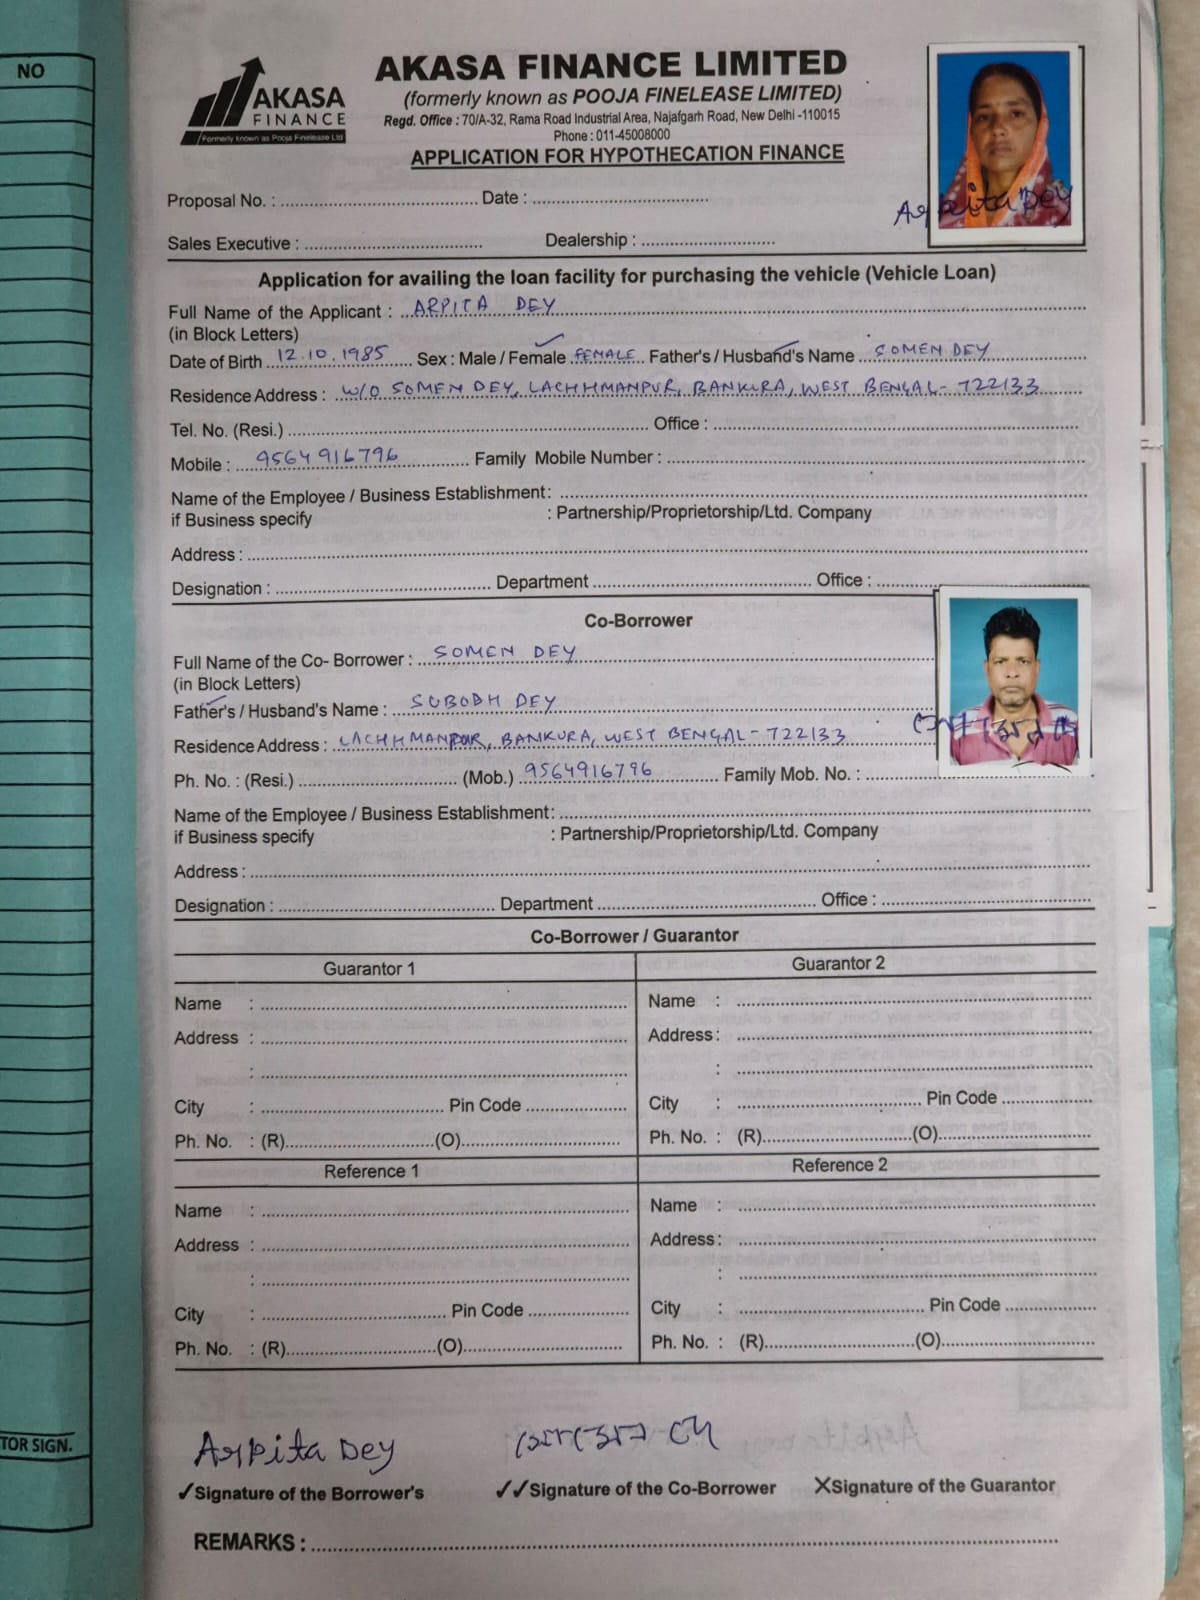 NO
AKASA
FINANCE
Formerly known as Pooja Finelease Ltd
AKASA FINANCE LIMITED
(formerly known as POOJA FINELEASE LIMITED)
Regd. Office : 70/A-32, Rama Road Industrial Area, Najafgarh Road, New Delhi -110015
Phone : 011-45008000
APPLICATION FOR HYPOTHECATION FINANCE
Arpita Dey
Proposal No. : Date :
Sales Executive : Dealership :
Application for availing the loan facility for purchasing the vehicle (Vehicle Loan)
Full Name of the Applicant : ARPITA DEY
(in Block Letters)
Date of Birth 12.10.1985 Sex : Male / Female FEMALE Father's / Husband's Name SOMEN DEY
Residence Address : W/O SOMEN DEY, LACHHMANPUR, BANKURA, WEST BENGAL- 722133
Tel. No. (Resi.) Office :
Mobile : 9564916796 Family Mobile Number :
Name of the Employee / Business Establishment:
if Business specify : Partnership/Proprietorship/Ltd. Company
Address :
Designation : Department Office :
Co-Borrower
Full Name of the Co- Borrower : SOMEN DEY
(in Block Letters)
Father's / Husband's Name : SUBODH DEY
Residence Address : LACHHMANPUR, BANKURA, WEST BENGAL- 722133
Ph. No. : (Resi.) (Mob.) 9564916796 Family Mob. No. :
Name of the Employee / Business Establishment:
if Business specify : Partnership/Proprietorship/Ltd. Company
Address :
Designation : Department Office :
Co-Borrower / Guarantor
Guarantor 1 Guarantor 2
Name : Name :
Address : Address :
: :
City : Pin Code City : Pin Code
Ph. No. : (R) (O) Ph. No. : (R) (O)
Reference 1 Reference 2
Name : Name :
Address : Address :
: :
City : Pin Code City : Pin Code
Ph. No. : (R) (O) Ph. No. : (R) (O)
TOR SIGN.
Arpita Dey সোমেন দে
✓Signature of the Borrower's ✓✓Signature of the Co-Borrower XSignature of the Guarantor
REMARKS :